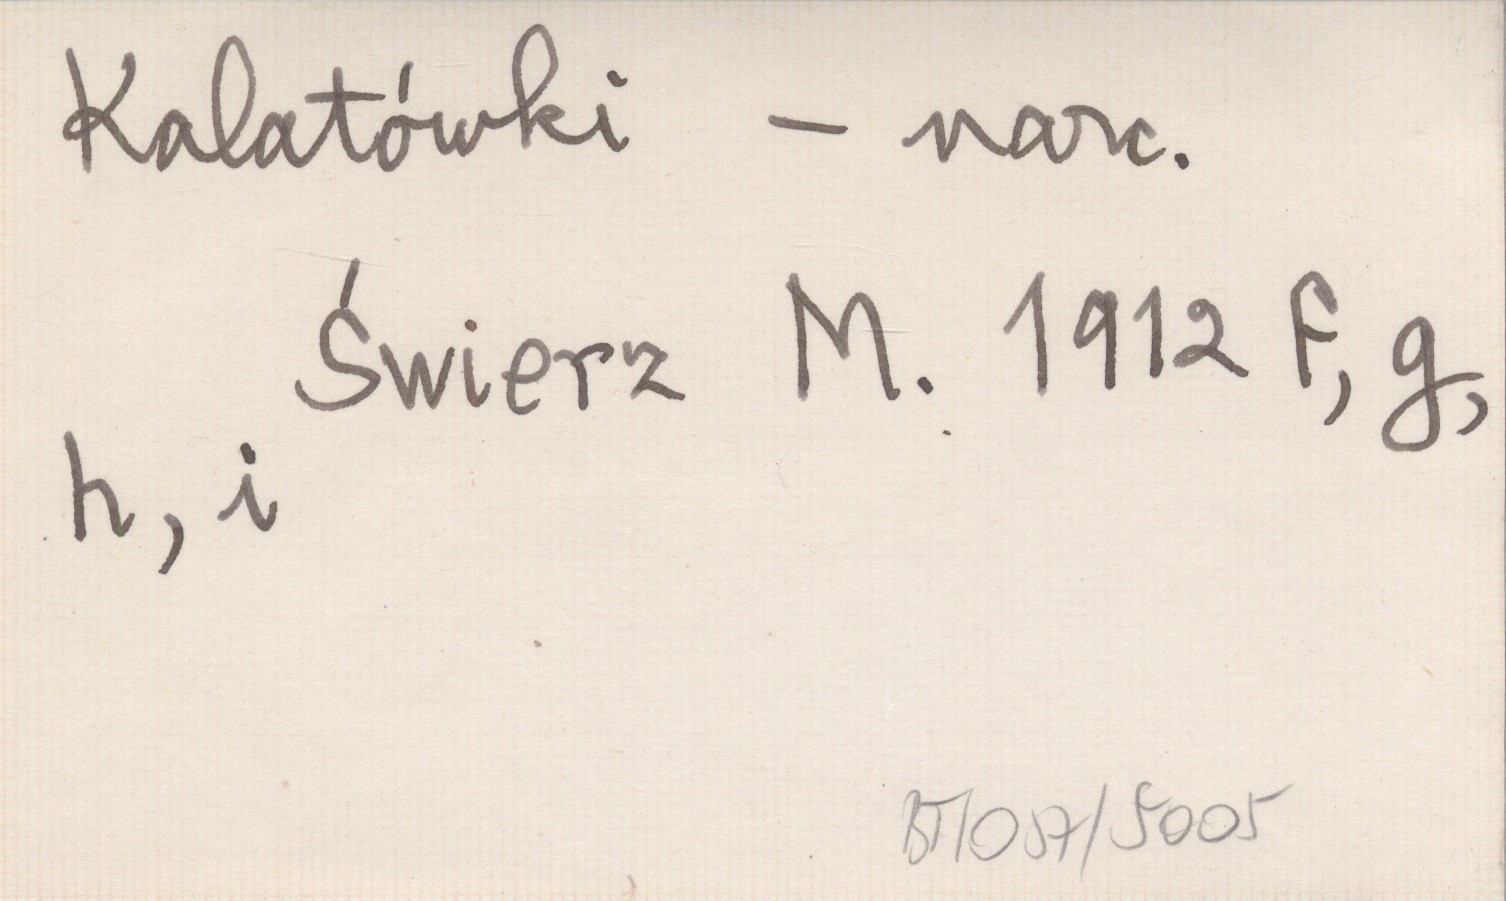 Kalatówki – narc.
Świerz M. 1912 f, g,
h, i
BT/057/5005